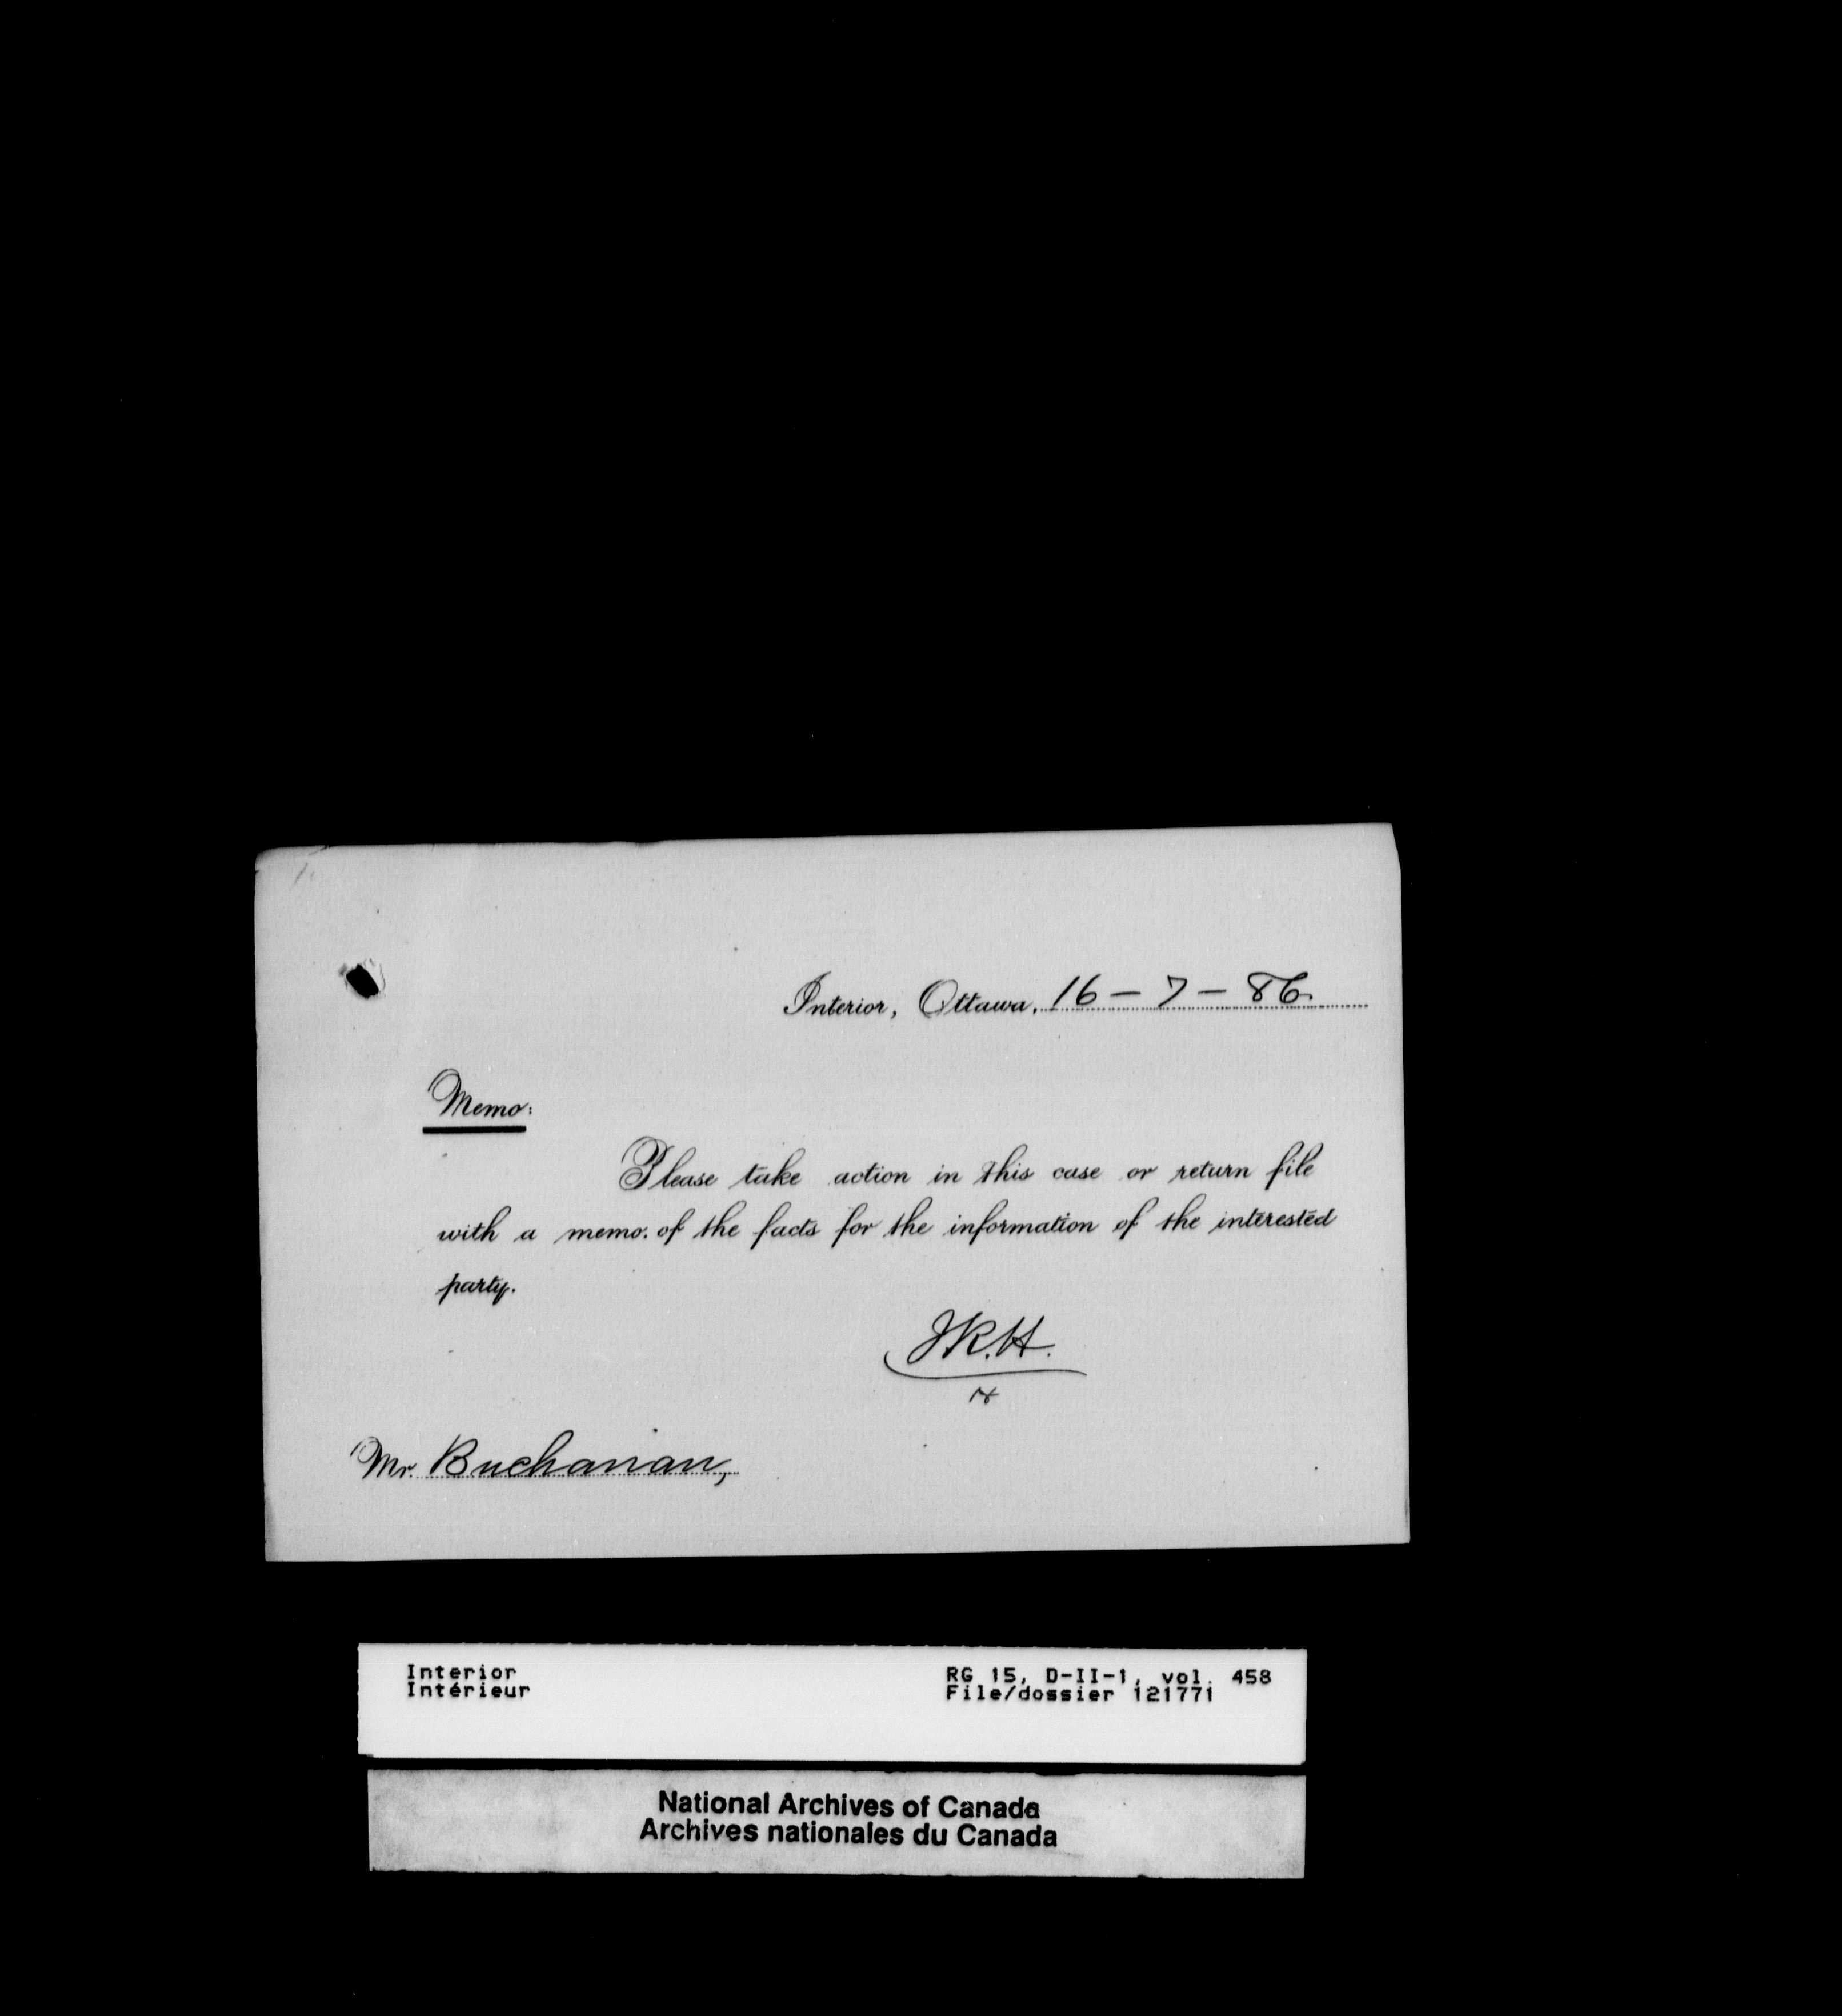 Interior, Ottawa, 16 – 7 – 86.
Memo:
Please take action in this case or return file
with a memo. of the facts for the information of the interested
party.
Mr. Buchanan,
Interior
Intérieur
RG 15, D-II-1, vol. 458
File/dossier 121771
National Archives of Canada
Archives nationales du Canada